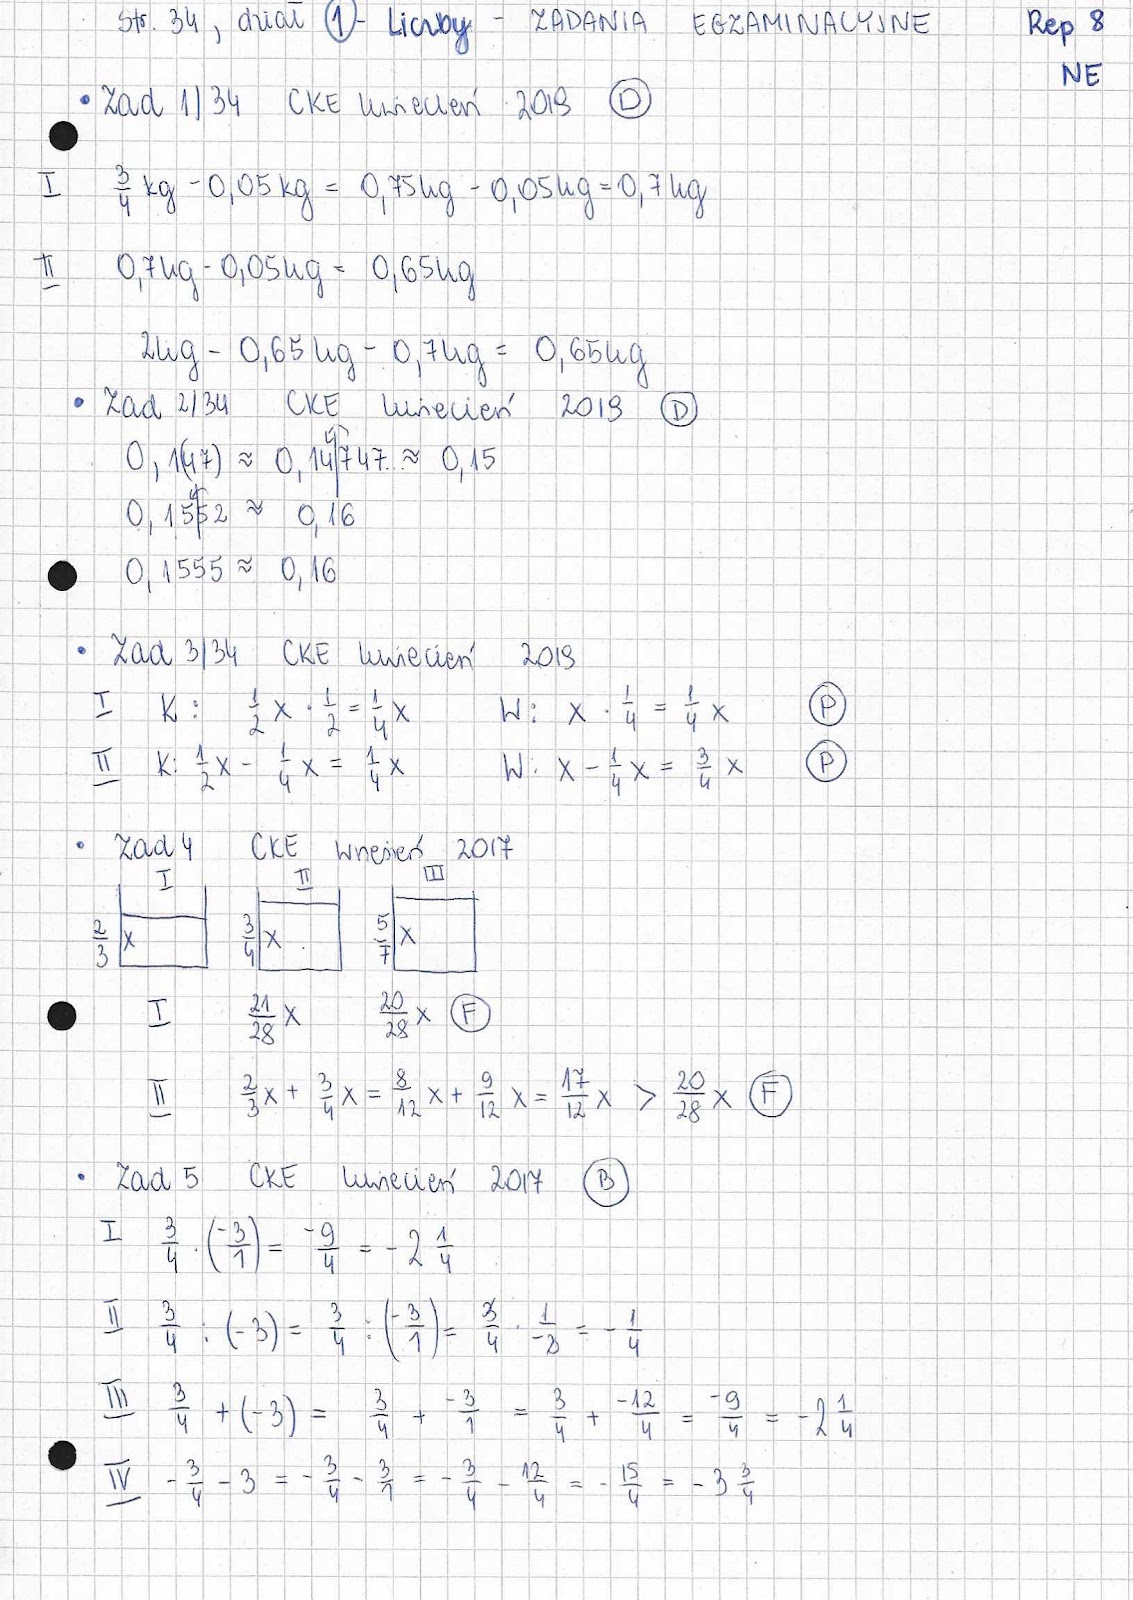 Str. 34, dział ① - Liczby - ZADANIA EGZAMINACYJNE Rep 8
NE
• Zad 1/34 CKE kwiecień 2019 Ⓓ
I 3/4 kg - 0,05 kg = 0,75 kg - 0,05 kg = 0,7 kg
II 0,7 kg - 0,05 kg = 0,65 kg
2 kg - 0,65 kg - 0,7 kg = 0,65 kg
• Zad 2/34 CKE kwiecień 2019 Ⓓ
0,1(47) ≈ 0,14|747.. ≈ 0,15
0,15|52 ≈ 0,16
0,1555 ≈ 0,16
• Zad 3/34 CKE kwiecień 2019
I K: 1/2 x · 1/2 = 1/4 x W: x · 1/4 = 1/4 x Ⓟ
II K: 1/2 x - 1/4 x = 1/4 x W: x - 1/4 x = 3/4 x Ⓟ
• Zad 4 CKE wrzesień 2017
I II III
2/3 x 3/4 x 5/7 x
I 21/28 x 20/28 x Ⓕ
II 2/3 x + 3/4 x = 8/12 x + 9/12 x = 17/12 x > 20/28 x Ⓕ
• Zad 5 CKE kwiecień 2017 Ⓑ
I 3/4 · (-3/1) = -9/4 = -2 1/4
II 3/4 : (-3) = 3/4 : (-3/1) = 3/4 · 1/-3 = -1/4
III 3/4 + (-3) = 3/4 + -3/1 = 3/4 + -12/4 = -9/4 = -2 1/4
IV -3/4 - 3 = -3/4 - 3/1 = -3/4 - 12/4 = -15/4 = -3 3/4